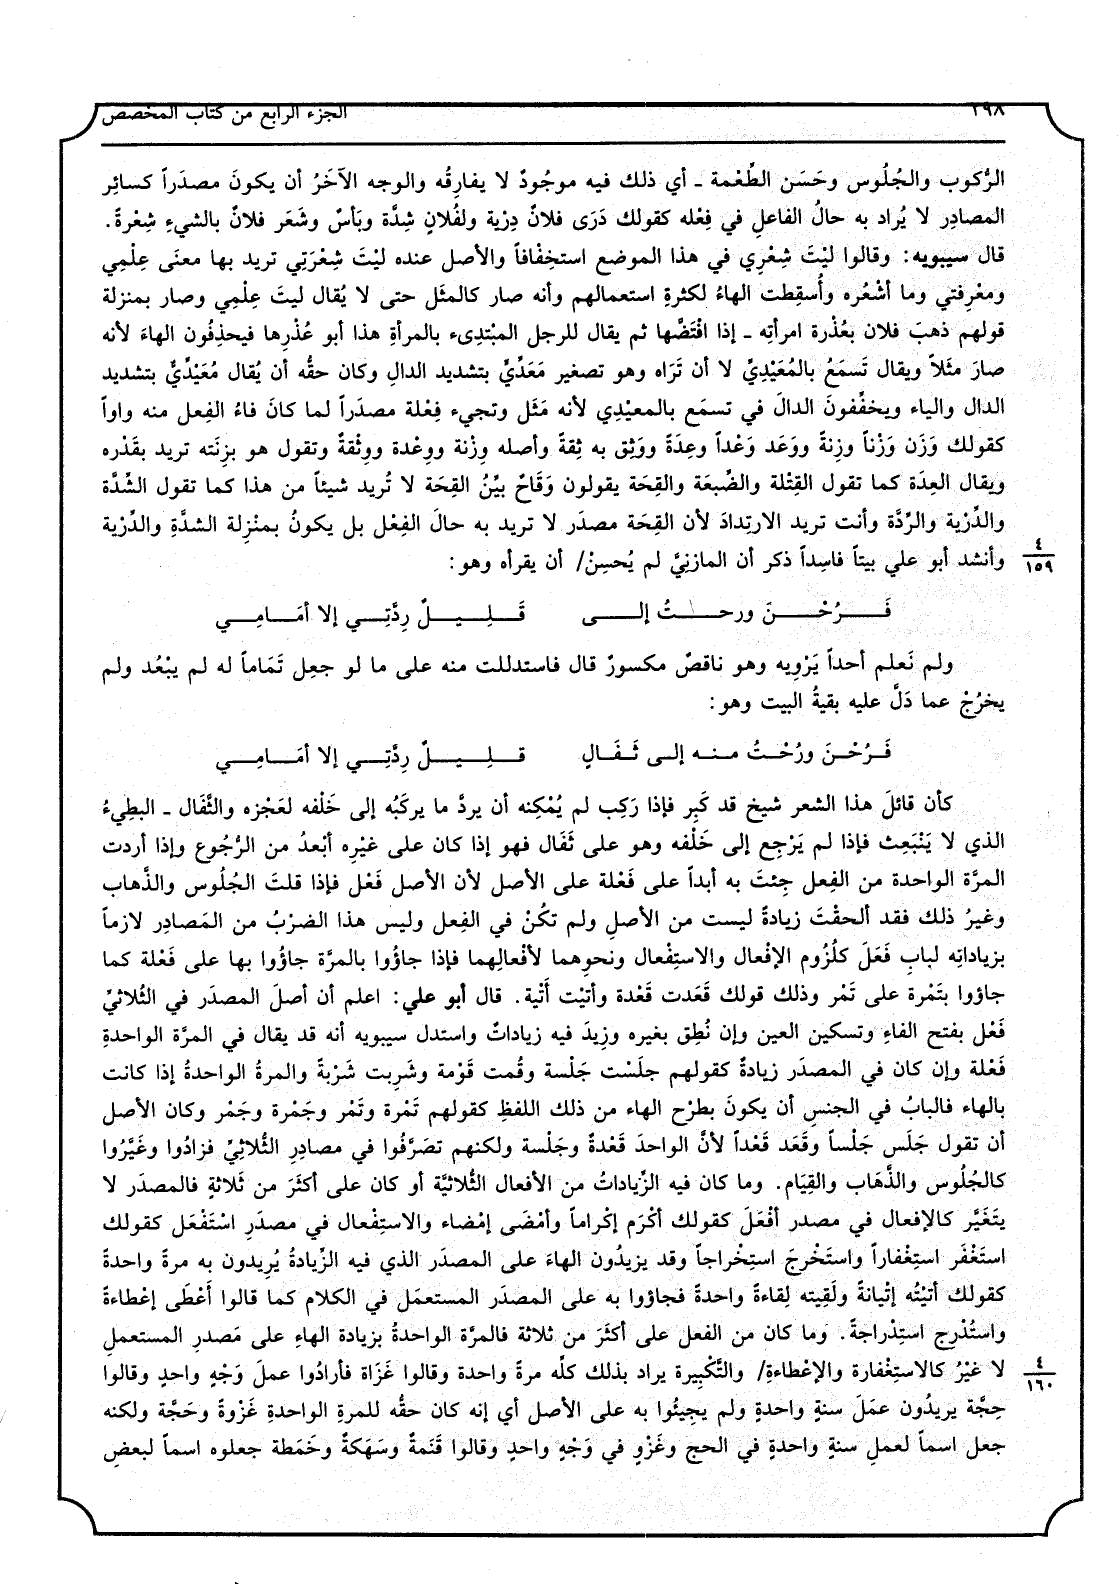 ٢٩٨
الجزء الرابع من كتاب المخصص
الرُّكوب والجُلُوس وحَسَن الطِّعْمة ـ أي ذلك فيه موجُودٌ لا يفارِقُه والوجه الآخَرُ أن يكونَ مصدَراً كسائِر
المصادِر لا يُراد به حالُ الفاعلِ في فِعْله كقولك دَرَى فلانٌ دِرْية ولفُلانٍ شِدَّة وبَأسٌ وشَعَر فلانٌ بالشيءِ شِعْرةً.
قال سيبويه: وقالوا ليْتَ شِعْرِي في هذا الموضع استخِفْافاً والأصل عنده ليْتَ شِعْرَتِي تريد بها معنَى عِلْمِي
ومَعْرِفتي وما أشْعُره وأُسقِطت الهاءُ لكثرةِ استعمالهم وأنه صار كالمثَل حتى لا يُقال ليتَ عِلْمِي وصار بمنزلة
قولهم ذهبَ فلان بعُذْرة امرأتِه ـ إذا افْتَضَّها ثم يقال للرجل المبْتدِىء بالمرأةِ هذا أبو عُذْرِها فيحذِفُون الهاءَ لأنه
صارَ مثَلاً ويقال تَسمَعُ بالمُعَيْدِيِّ لا أن تَرَاه وهو تصغير مَعَدِّيٍّ بتشديد الدالِ وكان حقُّه أن يُقال مُعَيْدِّيٌّ بتشديد
الدال والياء ويخفِّفونَ الدالَ في تسمَع بالمعيْدِي لأنه مَثَل وتجيء فِعْلة مصدَراً لما كانَ فاءُ الفِعل منه واواً
كقولك وَزَن وَزْناً وزِنةً ووَعَد وَعْداً وعِدَةً ووَثِق به ثِقةً وأصله وِزْنة ووِعْدة ووِثْقةٌ وتقول هو بزِنَته تريد بقَدْره
ويقال العِدَة كما تقول القِتْلة والضِّبعَة والقِحَة يقولون وَقَاحٌ بيِّنُ القِحَة لا تُريد شيئاً من هذا كما تقول الشِّدَّة
والدِّرْية والرِّدَّة وأنت تريد الارتِدادَ لأن القِحَة مصدَر لا تريد به حالَ الفِعْل بل يكونُ بمنْزلة الشدَّةِ والدِّرْية
وأنشد أبو علي بيتاً فاسِداً ذكر أن المازنِيَّ لم يُحسِنْ/ أن يقرأه وهو:
٤
١٥٩
فَـرُحْـنَ ورحـتُ إلـى قَـلِـيـلٌ رِدَّتِـي إلا أمَـامِـي
ولم نَعلم أحداً يَرْوِيه وهو ناقصٌ مكسورٌ قال فاستدللت منه على ما لو جعِل تَمَاماً له لم يبْعُد ولم
يخرُجْ عما دَلَّ عليه بقيةُ البيت وهو:
فَـرُحْـنَ ورُحْـتُ مـنـه إلـى ثَـفَـالٍ قـلِـيـلٌ رِدَّتِـي إلا أمَـامِـي
كأن قائلَ هذا الشعر شيخ قد كَبِر فإذا رَكِب لم يُمْكِنه أن يردَّ ما يركَبُه إلى خَلْفه لعَجْزه والثَّفَال ـ البطِيءُ
الذي لا يَنْبَعِث فإذا لم يَرْجِع إلى خَلْفه وهو على ثَفَال فهو إذا كان على غيْرِه أبْعدُ من الرُّجُوع وإذا أردت
المرَّة الواحدة من الفِعل جِئتَ به أبداً على فَعْلة على الأصل لأن الأصل فَعْل فإذا قلتَ الجُلُوس والذَّهاب
وغيرُ ذلك فقد ألحقْتَ زيادةً ليست من الأصلِ ولم تكُنْ في الفِعل وليس هذا الضرْبُ من المَصادِر لازماً
بزياداتِه لبابِ فَعَلَ كلُزُوم الإفْعال والاستِفْعال ونحوِهما لأفْعالِهما فإذا جاؤُوا بالمرَّة جاؤُوا بها على فَعْلة كما
جاؤوا بتَمْرة على تَمْر وذلك قولك قَعَدت قَعْدة وأتيْت أَتْية. قال أبو علي: اعلم أن أصلَ المصدَر في الثُلاثيِّ
فَعْل بفتح الفاءِ وتسكين العين وإن نُطِق بغيره وزِيدَ فيه زياداتٌ واستدل سيبويه أنه قد يقال في المرَّة الواحدةِ
فَعْلة وإن كان في المصدَر زيادةٌ كقولهم جلَسْت جَلْسة وقُمت قَوْمة وشَرِبت شَرْبةً والمرةُ الواحدةُ إذا كانت
بالهاء فالبابُ في الجنسِ أن يكونَ بطرْح الهاء من ذلك اللفظِ كقولهم تَمْرة وتَمْر وجَمْرة وجَمْر وكان الأصل
أن تقول جَلَس جَلْساً وقَعَد قَعْداً لأنَّ الواحدَ قَعْدةٌ وجَلْسة ولكنهم تصَرَّفُوا في مصادِرِ الثُّلاثِيِّ فزادُوا وغَيَّرُوا
كالجُلُوس والذَّهاب والقِيَام. وما كان فيه الزِّياداتُ من الأفعال الثُّلاثيَّة أو كان على أكثَرَ من ثَلاثةٍ فالمصدَر لا
يتَغَيَّر كالإفعال في مصدر أفْعَلَ كقولك أكْرَم إكْراماً وأمْضَى إمْضاء والاستِفْعال في مصدَر اسْتَفْعَل كقولك
استَغْفَر استِغْفاراً واستَخْرجَ استِخْراجاً وقد يزيدُون الهاءَ على المصدَر الذي فيه الزِّيادةُ يُرِيدون به مرةً واحدةً
كقولك أتيْتُه إتْيانةً ولَقِيته لِقاءةً واحدةً فجاؤوا به على المصدَر المستعمَل في الكلام كما قالوا أَعْطَى إعْطاءةً
واستُدْرِج استِدْراجةً. وما كان من الفعل على أكثَرَ من ثلاثة فالمرَّة الواحدةُ بزيادة الهاءِ على مَصدرِ المستعملِ
لا غيْرُ كالاستِغْفارة والإعْطاءةِ/ والتَّكْبِيرة يراد بذلك كلِّه مرةً واحدة وقالوا غَزَاة فأرادُوا عملَ وَجْهٍ واحدٍ وقالوا
٤
١٦٠
حِجَّة يريدُون عمَلَ سنةٍ واحدةٍ ولم يجِيئُوا به على الأصل أي إنه كان حقُّه للمرةِ الواحدةِ غَزْوةً وحَجَّة ولكنه
جعل اسماً لعملِ سنةٍ واحدةٍ في الحج وغَزْوٍ في وَجْهٍ واحدٍ وقالوا قَنَمةٌ وسَهَكةٌ وخَمَطة جعلوه اسماً لبعضِ